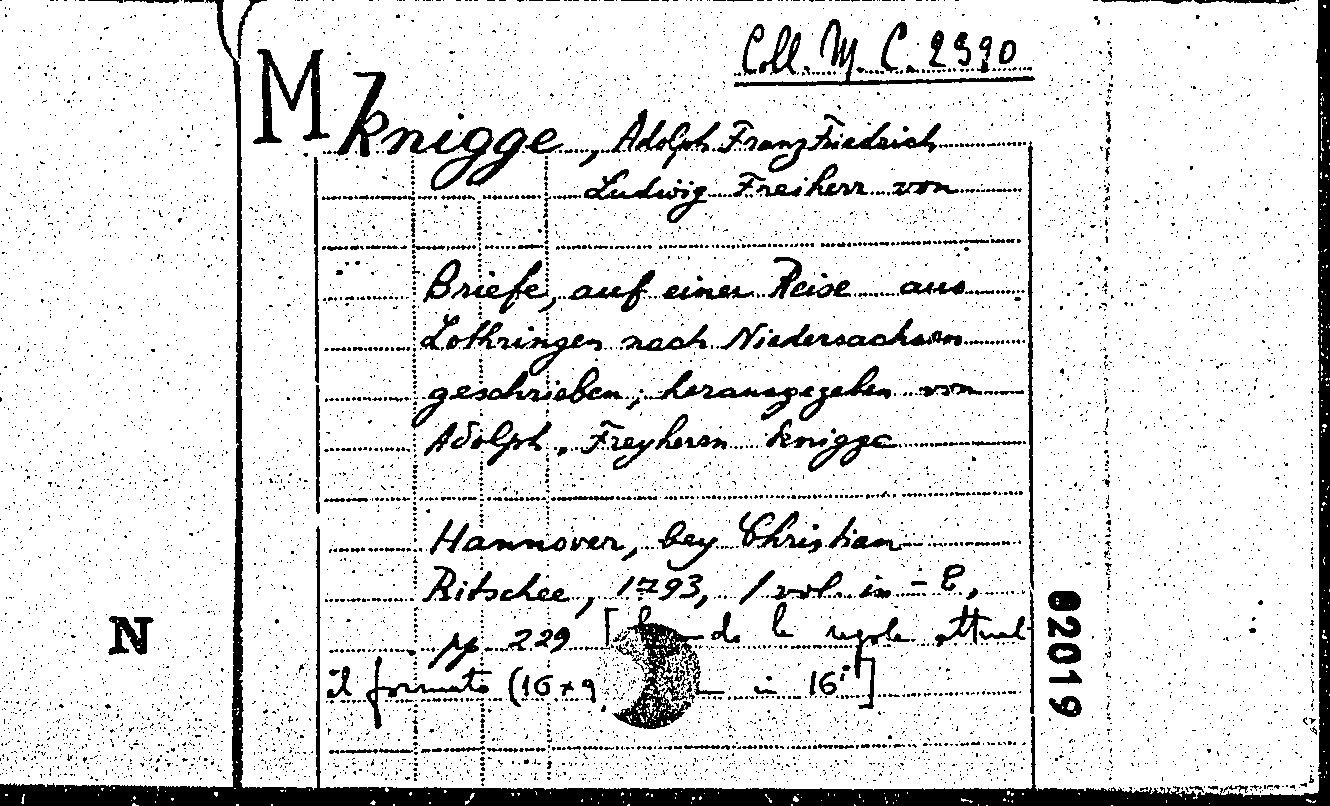 Coll. M. C. 2390
M Knigge, Adolph Franz Friedrich
Ludwig Freiherr von
Briefe, auf einer Reise aus
Lothringen nach Niedersachsen
geschrieben; herausgegeben von
Adolph, Freyherrn Knigge
Hannover, bey Christian
Ritscher, 1793, 1 vol. in - 8,
pp. 229 [ le regole attual
il formato (16 x 9 in 16°]
N
02019